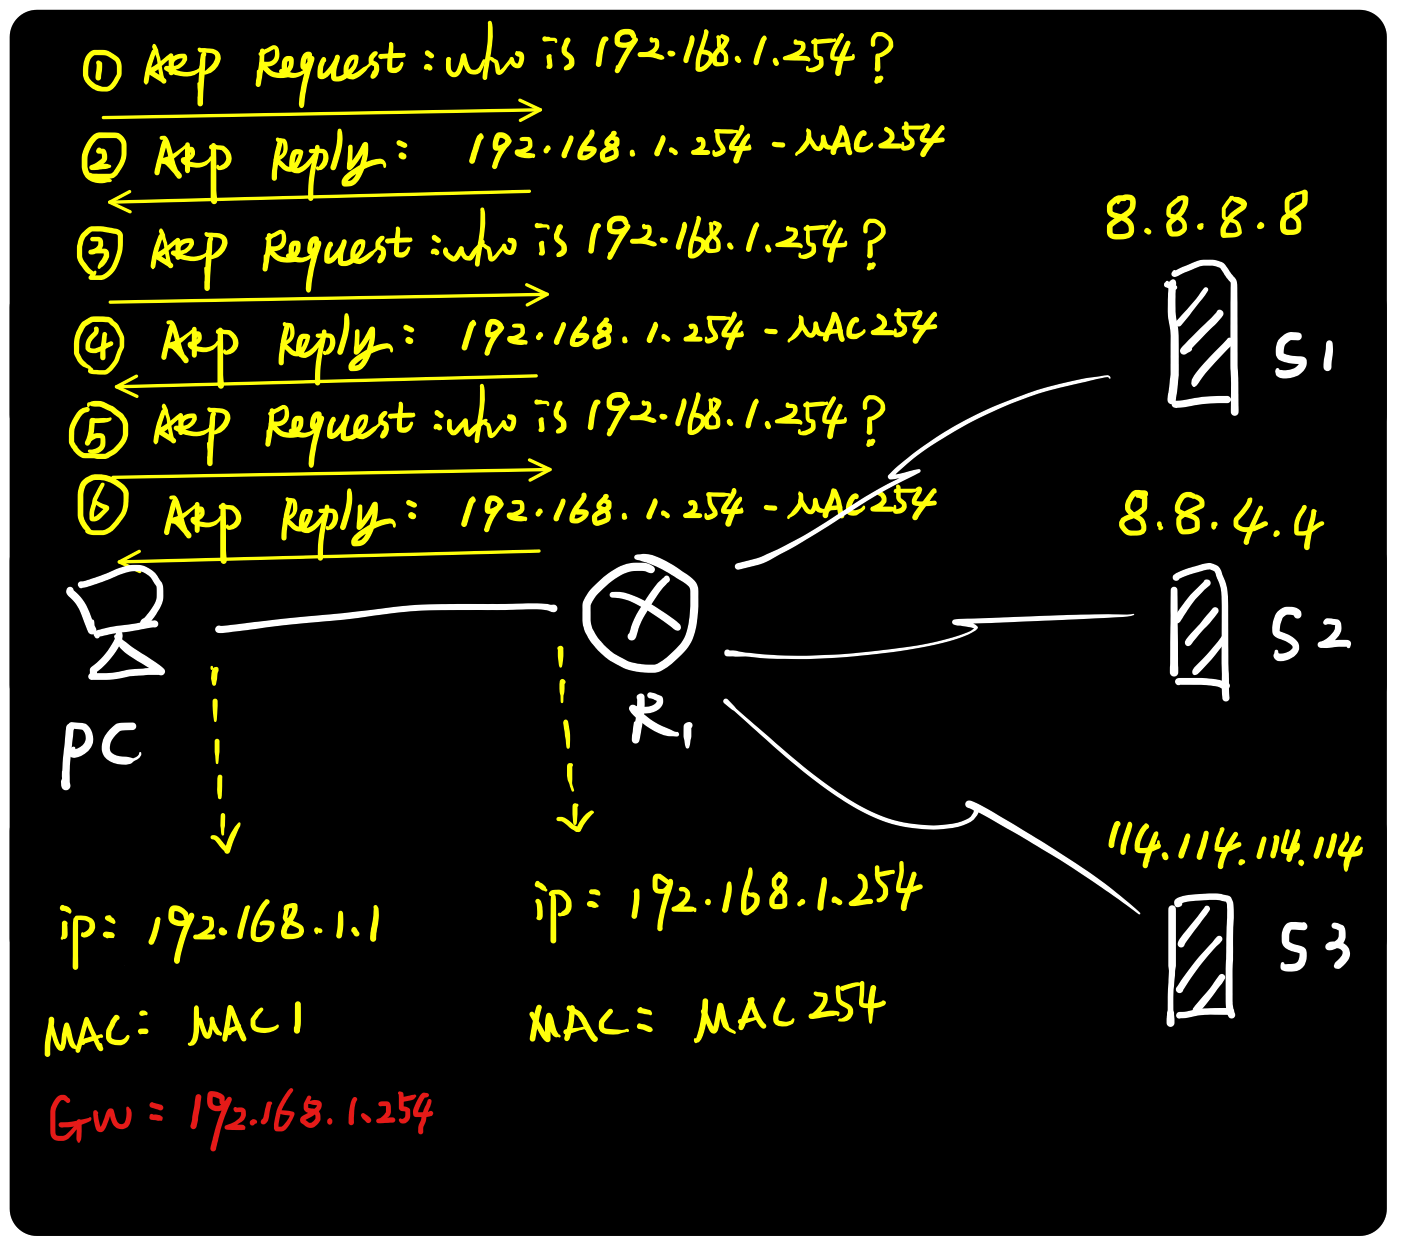 ① ARP Request : who is 192.168.1.254 ?
② ARP Reply : 192.168.1.254 - MAC254
③ ARP Request : who is 192.168.1.254 ?
④ ARP Reply : 192.168.1.254 - MAC254
⑤ ARP Request : who is 192.168.1.254 ?
⑥ ARP Reply : 192.168.1.254 - MAC254
8.8.8.8
S1
8.8.4.4
S2
PC
R1
114.114.114.114
S3
ip = 192.168.1.1
ip = 192.168.1.254
MAC = MAC1
MAC = MAC254
GW = 192.168.1.254